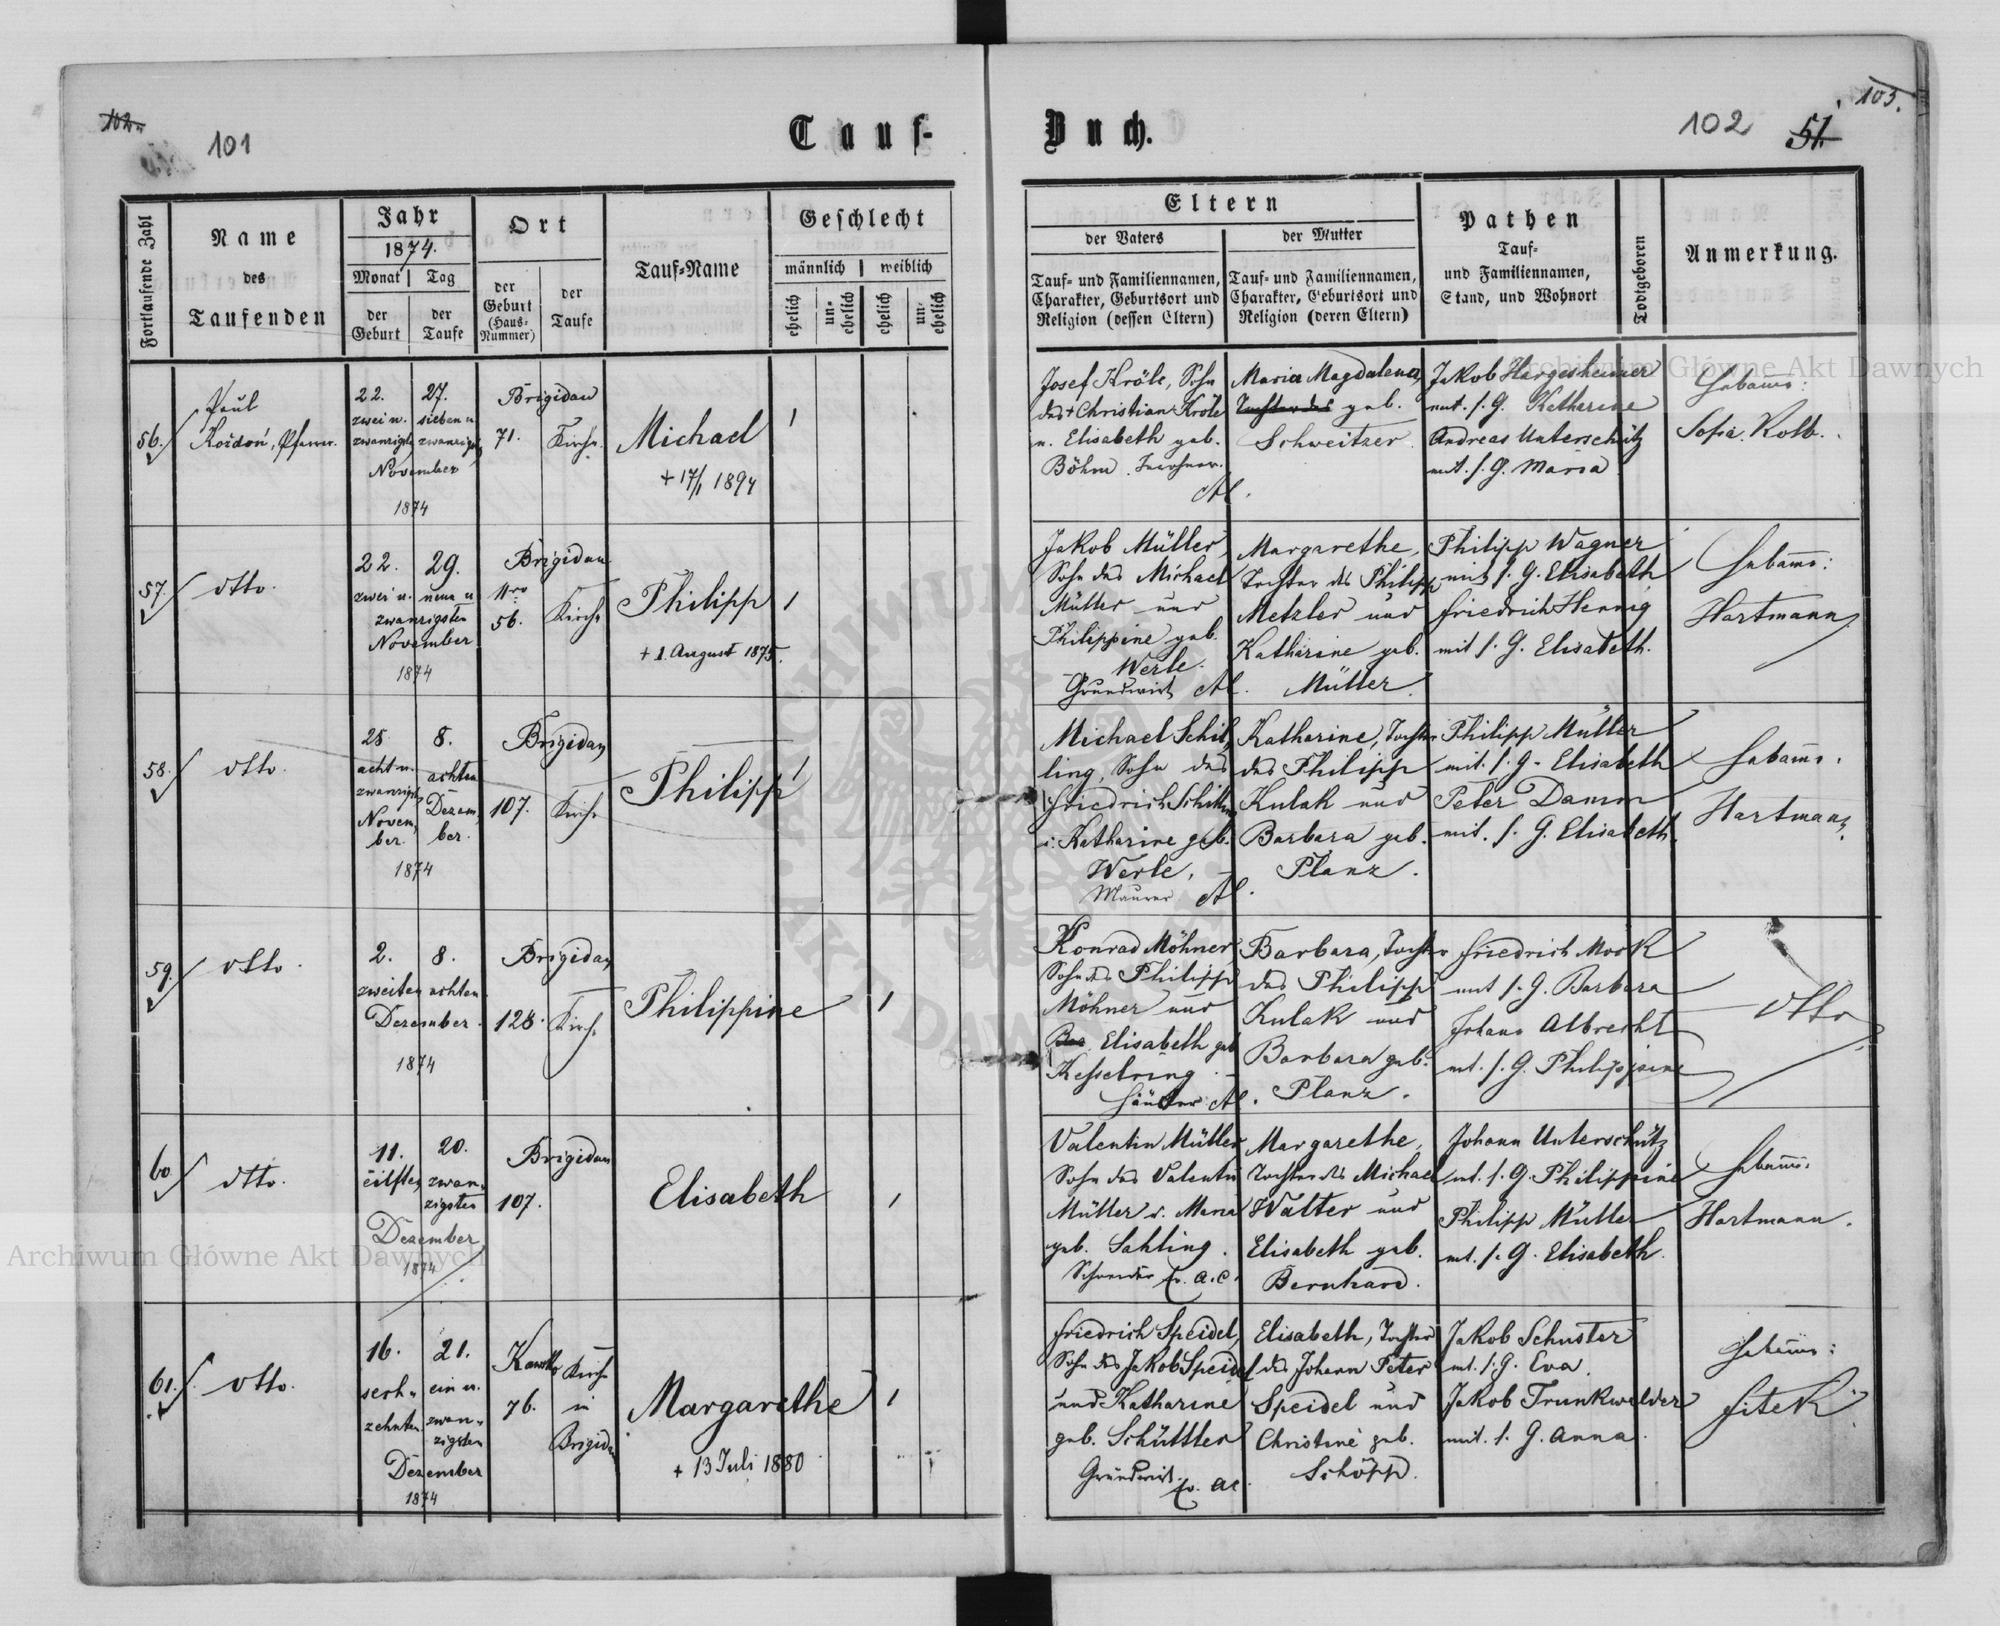 102
101
Tauf-
Buch.
102
51.
103.
Fortlaufende Zahl
Name
des
Taufenden
Jahr
1874.
Monat
Tag
der
Geburt
der
Taufe
Ort
der
Geburt
(Haus-
Nummer)
der
Taufe
Tauf-Name
Geschlecht
männlich
weiblich
ehelich
un-
ehelich
ehelich
un-
ehelich
Eltern
der Vaters
der Mutter
Tauf- und Familiennamen,
Charakter, Geburtsort und
Religion (dessen Eltern)
Tauf- und Familiennamen,
Charakter, Geburtsort und
Religion (deren Eltern)
Pathen
Tauf-
und Familiennamen,
Stand, und Wohnort
Todtgeboren
Anmerkung.
56.
Paul
Koždoń, Pfarrer.
22.
zwei u.
27.
sieben u.
zwanzigsten
November
1874
Brigidau
71.
Kirche
Michael
+ 17/1 1894
1
Josef Kröle, Sohn
des + Christian Kröle
u. Elisabeth geb.
Böhm. Inwohner.
AC.
Maria Magdalena,
Tochter des geb.
Schweitzer.
Jakob Hargesheimer
mit s. G. Katharine
Andreas Unterschütz
mit. s. G. Maria
Hebamme:
Sofia Kolb.
57.
dtto.
22.
zwei u.
29.
neun u
zwanzigsten
November
1874
Brigidau
Nro
56.
Kirche
Philipp
+ 1. August 1875.
1
Jakob Müller,
Sohn des Michael
Müller und
Philippine geb.
Werle.
Grundwirt AC.
Margarethe,
Tochter des Philipp
Metzler und
Katharine geb.
Müller.
Philipp Wagner
mit s. G. Elisabeth
Friedrich Hennig
mit s. G. Elisabeth.
Hebamme:
Hartmann
58.
dtto.
28
acht u.
zwanzigsten
Novem
ber.
8.
achten
Dezem
ber.
1874
Brigidau
107.
Kirche
Philipp
1
Michael Schil,
ling, Sohn des
Friedrich Schilling
u. Katharine geb.
Werle.
Maurer AC.
Katharine, Tochter
des Philipp
Kulak und
Barbara geb.
Planz.
Philipp Müller
mit. s. G. Elisabeth
Peter Damm
mit. s. G. Elisabeth.
Hebamme.
Hartmann.
59.
dtto.
2.
zweiten
8.
achten
Dezember.
1874
Brigidau
128.
Kirche
Philippine
1
Konrad Möhner
Sohn des Philipp
Möhner und
Bar Elisabeth geb
Kesselring.
Häusler AC.
Barbara, Tochter
des Philipp
Kulak und
Barbara geb.
Planz.
Friedrich Mook
mit s. G. Barbara
Johann Albrecht
mt. s. G. Philippine
dtto
60
dtto.
11.
eilften
20.
zwan-
zigsten
Dezember
1874
Brigidau
107.
Elisabeth
1
Valentin Müller
Sohn des Valentin
Müller u. Maria
geb. Sahling.
Schneider Ev. A.C.
Margarethe,
Tochter des Michael
Walter und
Elisabeth geb.
Bernhard.
Johann Unterschütz
mt. s. G. Philippine
Philipp Müller
mt. s. G. Elisabeth.
Hebamme.
Hartmann.
61.
dtto.
16.
sech-
zehnten
21.
ein u.
zwan-
zigsten
Dezember
1874
76.
Kirche
in
Brigidau
Margarethe
+ 13 Juli 1880
1
Friedrich Speidel,
Sohn des Jakob Speidel
und Katharine
geb. Schüttler
Grundwirt. Ev. AC.
Elisabeth, Tochter
des Johann Peter
Speidel und
Christine geb.
Schöpp.
Jakob Schuster
mt. s. G. Eva.
Jakob Trunkwalder
mit. s. G. Anna.
Hebamme:
Fitek.
Archiwum Główne Akt Dawnych
Archiwum Główne Akt Dawnych